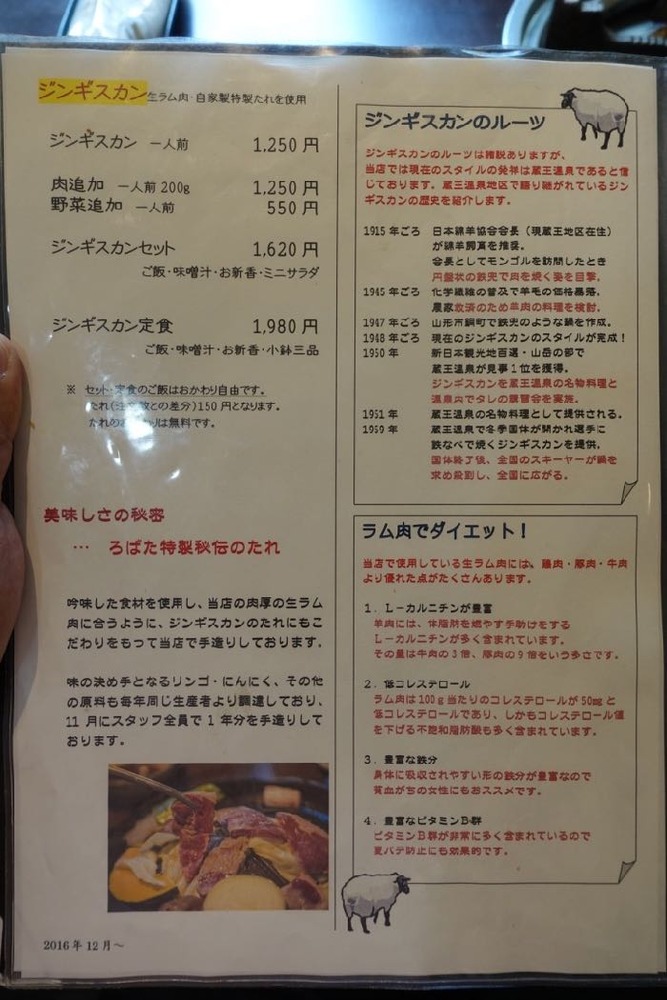 ジンギスカン 生ラム肉・自家製特製たれを使用
ジンギスカン 一人前 1,250 円
肉追加 一人前 200g 1,250 円
野菜追加 一人前 550 円
ジンギスカンセット 1,620 円
ご飯・味噌汁・お新香・ミニサラダ
ジンギスカン定食 1,980 円
ご飯・味噌汁・お新香・小鉢三品
※ セット・定食のご飯はおかわり自由です。
たれ(注文数との差分)150 円となります。
たれのおかわりは無料です。
美味しさの秘密
… ろばた特製秘伝のたれ
吟味した食材を使用し、当店の肉厚の生ラム
肉に合うように、ジンギスカンのたれにもこ
だわりをもって当店で手造りしております。
味の決め手となるリンゴ・にんにく、その他
の原料も毎年同じ生産者より調達しており、
11 月にスタッフ全員で 1 年分を手造りして
おります。
2016 年 12 月～
ジンギスカンのルーツ
ジンギスカンのルーツは諸説ありますが、
当店では現在のスタイルの発祥は蔵王温泉であると信
じております。蔵王温泉地区で語り継がれているジン
ギスカンの歴史を紹介します。
1915 年ごろ 日本綿羊協会会長（現蔵王地区在住）
が綿羊飼育を推奨。
会長としてモンゴルを訪問したとき
円盤状の鉄兜で肉を焼く姿を目撃。
1945 年ごろ 化学繊維の普及で羊毛の価格暴落。
農家救済のため羊肉の料理を検討。
1947 年ごろ 山形市銅町で鉄兜のような鍋を作成。
1948 年ごろ 現在のジンギスカンのスタイルが完成！
1950 年 新日本観光地百選・山岳の部で
蔵王温泉が見事 1 位を獲得。
ジンギスカンを蔵王温泉の名物料理と
温泉内でタレの講習会を実施。
1951 年 蔵王温泉の名物料理として提供される。
1959 年 蔵王温泉で冬季国体が開かれ選手に
鉄なべで焼くジンギスカンを提供。
国体終了後、全国のスキーヤーが鍋を
求め殺到し、全国に広がる。
ラム肉でダイエット！
当店で使用している生ラム肉には、鶏肉・豚肉・牛肉
より優れた点がたくさんあります。
1．L－カルニチンが豊富
羊肉には、体脂肪を燃やす手助けをする
L－カルニチンが多く含まれています。
その量は牛肉の 3 倍、豚肉の 9 倍という多さです。
2．低コレステロール
ラム肉は 100ｇ当たりのコレステロールが 50mg と
低コレステロールであり、しかもコレステロール値
を下げる不飽和脂肪酸も多く含まれています。
3．豊富な鉄分
身体に吸収されやすい形の鉄分が豊富なので
貧血がちの女性にもおススメです。
4．豊富なビタミンB群
ビタミンB群が非常に多く含まれているので
夏バテ防止にも効果的です。